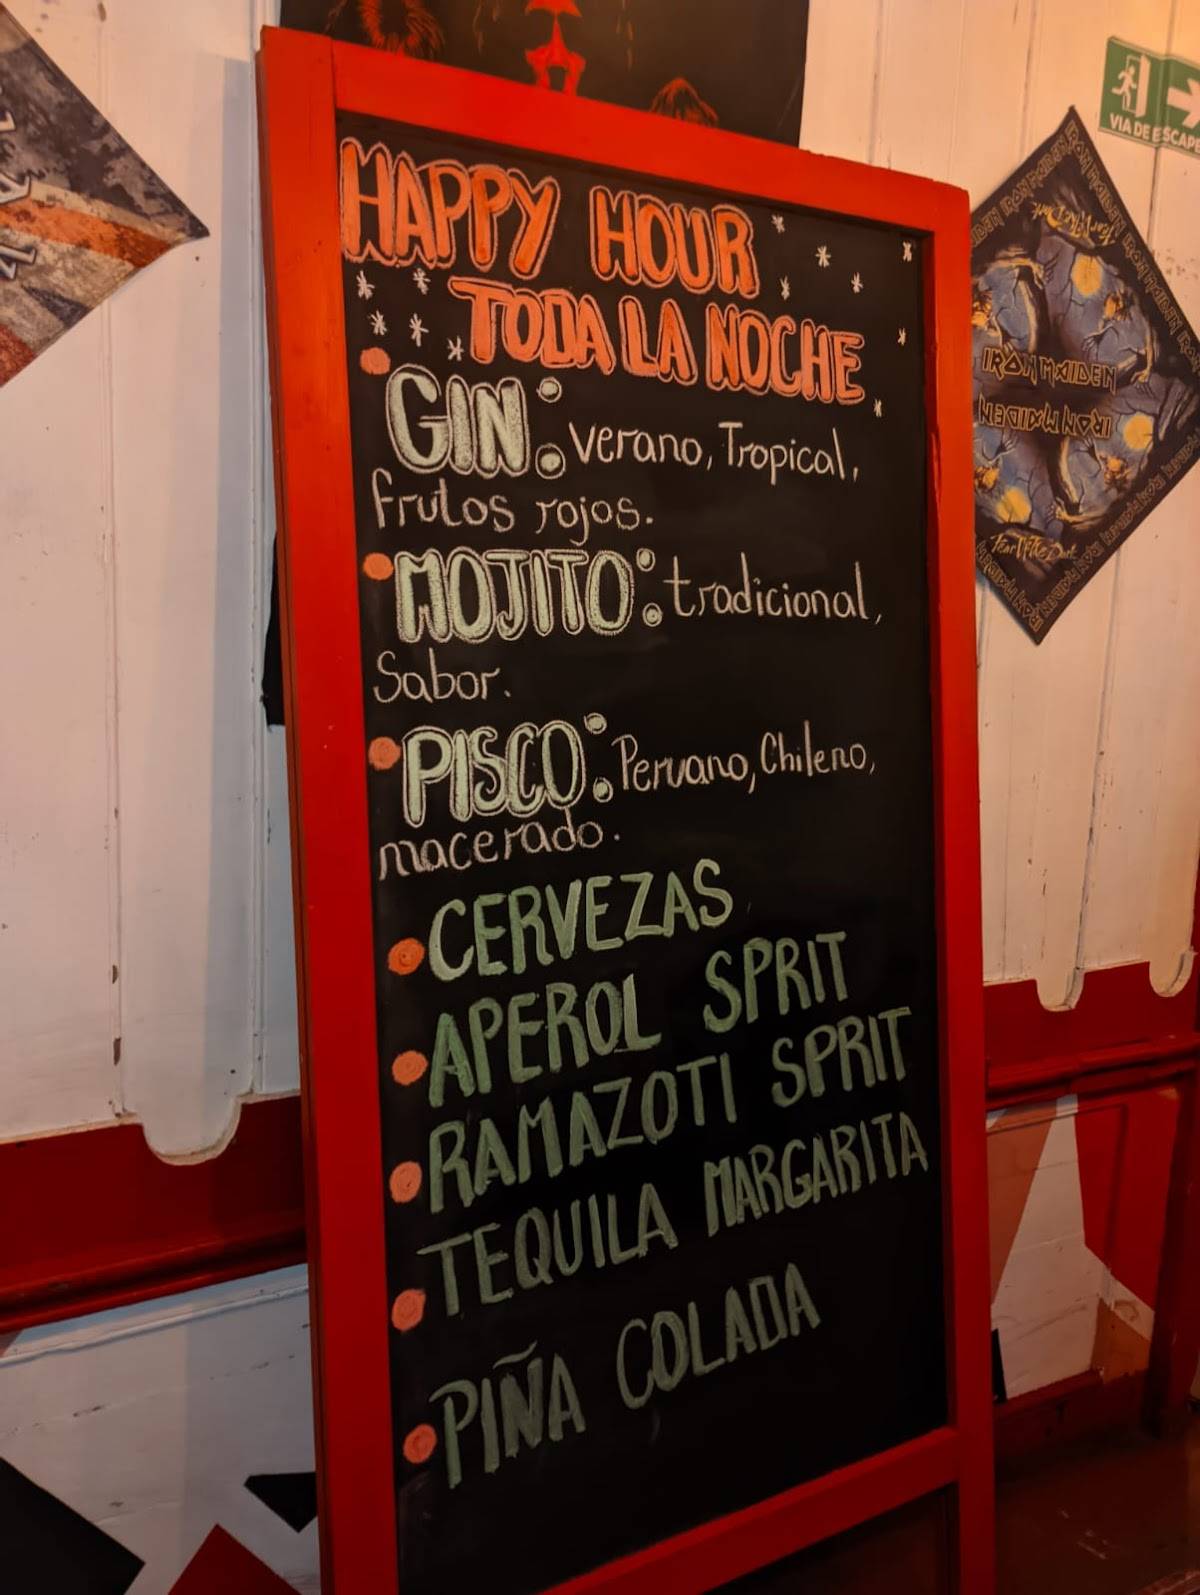 HAPPY HOUR
TODA LA NOCHE
GIN: Verano, Tropical,
frutos rojos.
MOJITO: tradicional,
Sabor.
PISCO: Peruano, Chileno,
macerado.
CERVEZAS
APEROL SPRIT
RAMAZOTI SPRIT
TEQUILA MARGARITA
PIÑA COLADA
VIA DE ESCAPE
Fear Of The Dark
IRON MAIDEN
IRON MAIDEN
Fear Of The Dark